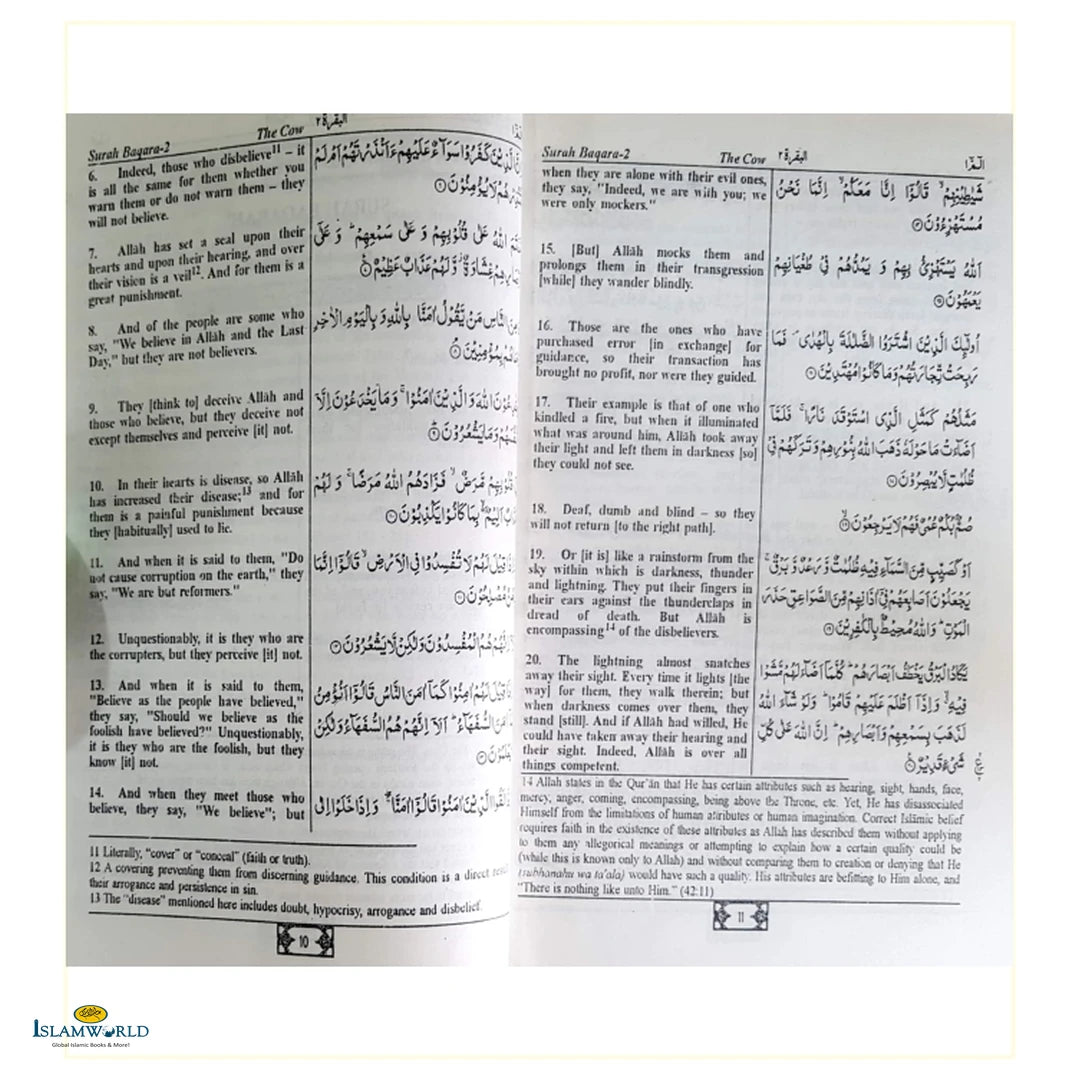 Surah Baqara-2
The Cow
البقرة ٢
6. Indeed, those who disbelieve11 – it
is all the same for them whether you
warn them or do not warn them – they
will not believe.
7. Allāh has set a seal upon their
hearts and upon their hearing, and over
their vision is a veil12. And for them is a
great punishment.
8. And of the people are some who
say, "We believe in Allāh and the Last
Day," but they are not believers.
9. They [think to] deceive Allāh and
those who believe, but they deceive not
except themselves and perceive [it] not.
10. In their hearts is disease, so Allāh
has increased their disease;13 and for
them is a painful punishment because
they [habitually] used to lie.
11. And when it is said to them, "Do
not cause corruption on the earth," they
say, "We are but reformers."
12. Unquestionably, it is they who are
the corrupters, but they perceive [it] not.
13. And when it is said to them,
"Believe as the people have believed,"
they say, "Should we believe as the
foolish have believed?" Unquestionably,
it is they who are the foolish, but they
know [it] not.
14. And when they meet those who
believe, they say, "We believe"; but
الَّذِيْنَ كَفَرُوْا سَوَآءٌ عَلَيْهِمْ ءَاَنْذَرْتَهُمْ اَمْ لَمْ
هُمْ لَا يُؤْمِنُوْنَ ۶
اللّٰهُ عَلٰى قُلُوْبِهِمْ وَ عَلٰى سَمْعِهِمْ ؕ وَ عَلٰۤى
غِشَاوَةٌ ؗ وَّ لَهُمْ عَذَابٌ عَظِيْمٌ ۷
النَّاسِ مَنْ يَّقُوْلُ اٰمَنَّا بِاللّٰهِ وَ بِالْيَوْمِ الْاٰخِرِ
هُمْ بِمُؤْمِنِيْنَ ۸
اللّٰهَ وَ الَّذِيْنَ اٰمَنُوْا ۚ وَ مَا يَخْدَعُوْنَ اِلَّاۤ
وَ مَا يَشْعُرُوْنَ ۹
مَّرَضٌ ۙ فَزَادَهُمُ اللّٰهُ مَرَضًا ۚ وَ لَهُمْ
اَلِيْمٌۢ ۙ بِمَا كَانُوْا يَكْذِبُوْنَ ۱۰
قِيْلَ لَهُمْ لَا تُفْسِدُوْا فِي الْاَرْضِ ۙ قَالُوْۤا اِنَّمَا
مُصْلِحُوْنَ ۱۱
هُمُ الْمُفْسِدُوْنَ وَ لٰكِنْ لَّا يَشْعُرُوْنَ ۱۲
قِيْلَ لَهُمْ اٰمِنُوْا كَمَاۤ اٰمَنَ النَّاسُ قَالُوْۤا اَنُؤْمِنُ
السُّفَهَآءُ ؕ اَلَاۤ اِنَّهُمْ هُمُ السُّفَهَآءُ وَ لٰكِنْ
الَّذِيْنَ اٰمَنُوْا قَالُوْۤا اٰمَنَّا ۖۚ وَ اِذَا خَلَوْا اِلٰى
11 Literally, "cover" or "conceal" (faith or truth).
12 A covering preventing them from discerning guidance. This condition is a direct
their arrogance and persistence in sin.
13 The "disease" mentioned here includes doubt, hypocrisy, arrogance and disbelief.
10
Surah Baqara-2
The Cow
البقرة ٢
الٓمّٓ ١
when they are alone with their evil ones,
they say, "Indeed, we are with you; we
were only mockers."
15. [But] Allāh mocks them and
prolongs them in their transgression
[while] they wander blindly.
16. Those are the ones who have
purchased error [in exchange] for
guidance, so their transaction has
brought no profit, nor were they guided.
17. Their example is that of one who
kindled a fire, but when it illuminated
what was around him, Allāh took away
their light and left them in darkness [so]
they could not see.
18. Deaf, dumb and blind – so they
will not return [to the right path].
19. Or [it is] like a rainstorm from the
sky within which is darkness, thunder
and lightning. They put their fingers in
their ears against the thunderclaps in
dread of death. But Allāh is
encompassing14 of the disbelievers.
20. The lightning almost snatches
away their sight. Every time it lights [the
way] for them, they walk therein; but
when darkness comes over them, they
stand [still]. And if Allāh had willed, He
could have taken away their hearing and
their sight. Indeed, Allāh is over all
things competent.
شَيٰطِيْنِهِمْ ۙ قَالُوْۤا اِنَّا مَعَكُمْ ۙ اِنَّمَا نَحْنُ
مُسْتَهْزِءُوْنَ ۱۴
اَللّٰهُ يَسْتَهْزِئُ بِهِمْ وَ يَمُدُّهُمْ فِيْ طُغْيَانِهِمْ
يَعْمَهُوْنَ ۱۵
اُولٰٓئِكَ الَّذِيْنَ اشْتَرَوُا الضَّلٰلَةَ بِالْهُدٰى ۪ فَمَا
رَبِحَتْ تِّجَارَتُهُمْ وَ مَا كَانُوْا مُهْتَدِيْنَ ۱۶
مَثَلُهُمْ كَمَثَلِ الَّذِي اسْتَوْقَدَ نَارًا ۚ فَلَمَّاۤ
اَضَآءَتْ مَا حَوْلَهٗ ذَهَبَ اللّٰهُ بِنُوْرِهِمْ وَ تَرَكَهُمْ فِيْ
ظُلُمٰتٍ لَّا يُبْصِرُوْنَ ۱۷
صُمٌّۢ بُكْمٌ عُمْيٌ فَهُمْ لَا يَرْجِعُوْنَ ۱۸
اَوْ كَصَيِّبٍ مِّنَ السَّمَآءِ فِيْهِ ظُلُمٰتٌ وَّ رَعْدٌ وَّ بَرْقٌ ۚ
يَجْعَلُوْنَ اَصَابِعَهُمْ فِيْۤ اٰذَانِهِمْ مِّنَ الصَّوَاعِقِ حَذَرَ
الْمَوْتِ ؕ وَ اللّٰهُ مُحِيْطٌۢ بِالْكٰفِرِيْنَ ۱۹
يَكَادُ الْبَرْقُ يَخْطَفُ اَبْصَارَهُمْ ؕ كُلَّمَاۤ اَضَآءَ لَهُمْ مَّشَوْا
فِيْهِ ۙ وَ اِذَاۤ اَظْلَمَ عَلَيْهِمْ قَامُوْا ؕ وَ لَوْ شَآءَ اللّٰهُ
لَذَهَبَ بِسَمْعِهِمْ وَ اَبْصَارِهِمْ ؕ اِنَّ اللّٰهَ عَلٰى كُلِّ
شَيْءٍ قَدِيْرٌ ۲۰
14 Allah states in the Qur'ān that He has certain attributes such as hearing, sight, hands, face,
mercy, anger, coming, encompassing, being above the Throne, etc. Yet, He has disassociated
Himself from the limitations of human attributes or human imagination. Correct Islāmic belief
requires faith in the existence of these attributes as Allah has described them without applying
to them any allegorical meanings or attempting to explain how a certain quality could be
(while this is known only to Allah) and without comparing them to creation or denying that He
(subhanahu wa ta'ala) would have such a quality. His attributes are befitting to Him alone, and
"There is nothing like unto Him." (42:11)
11
ISLAMWORLD
Global Islamic Books & More!